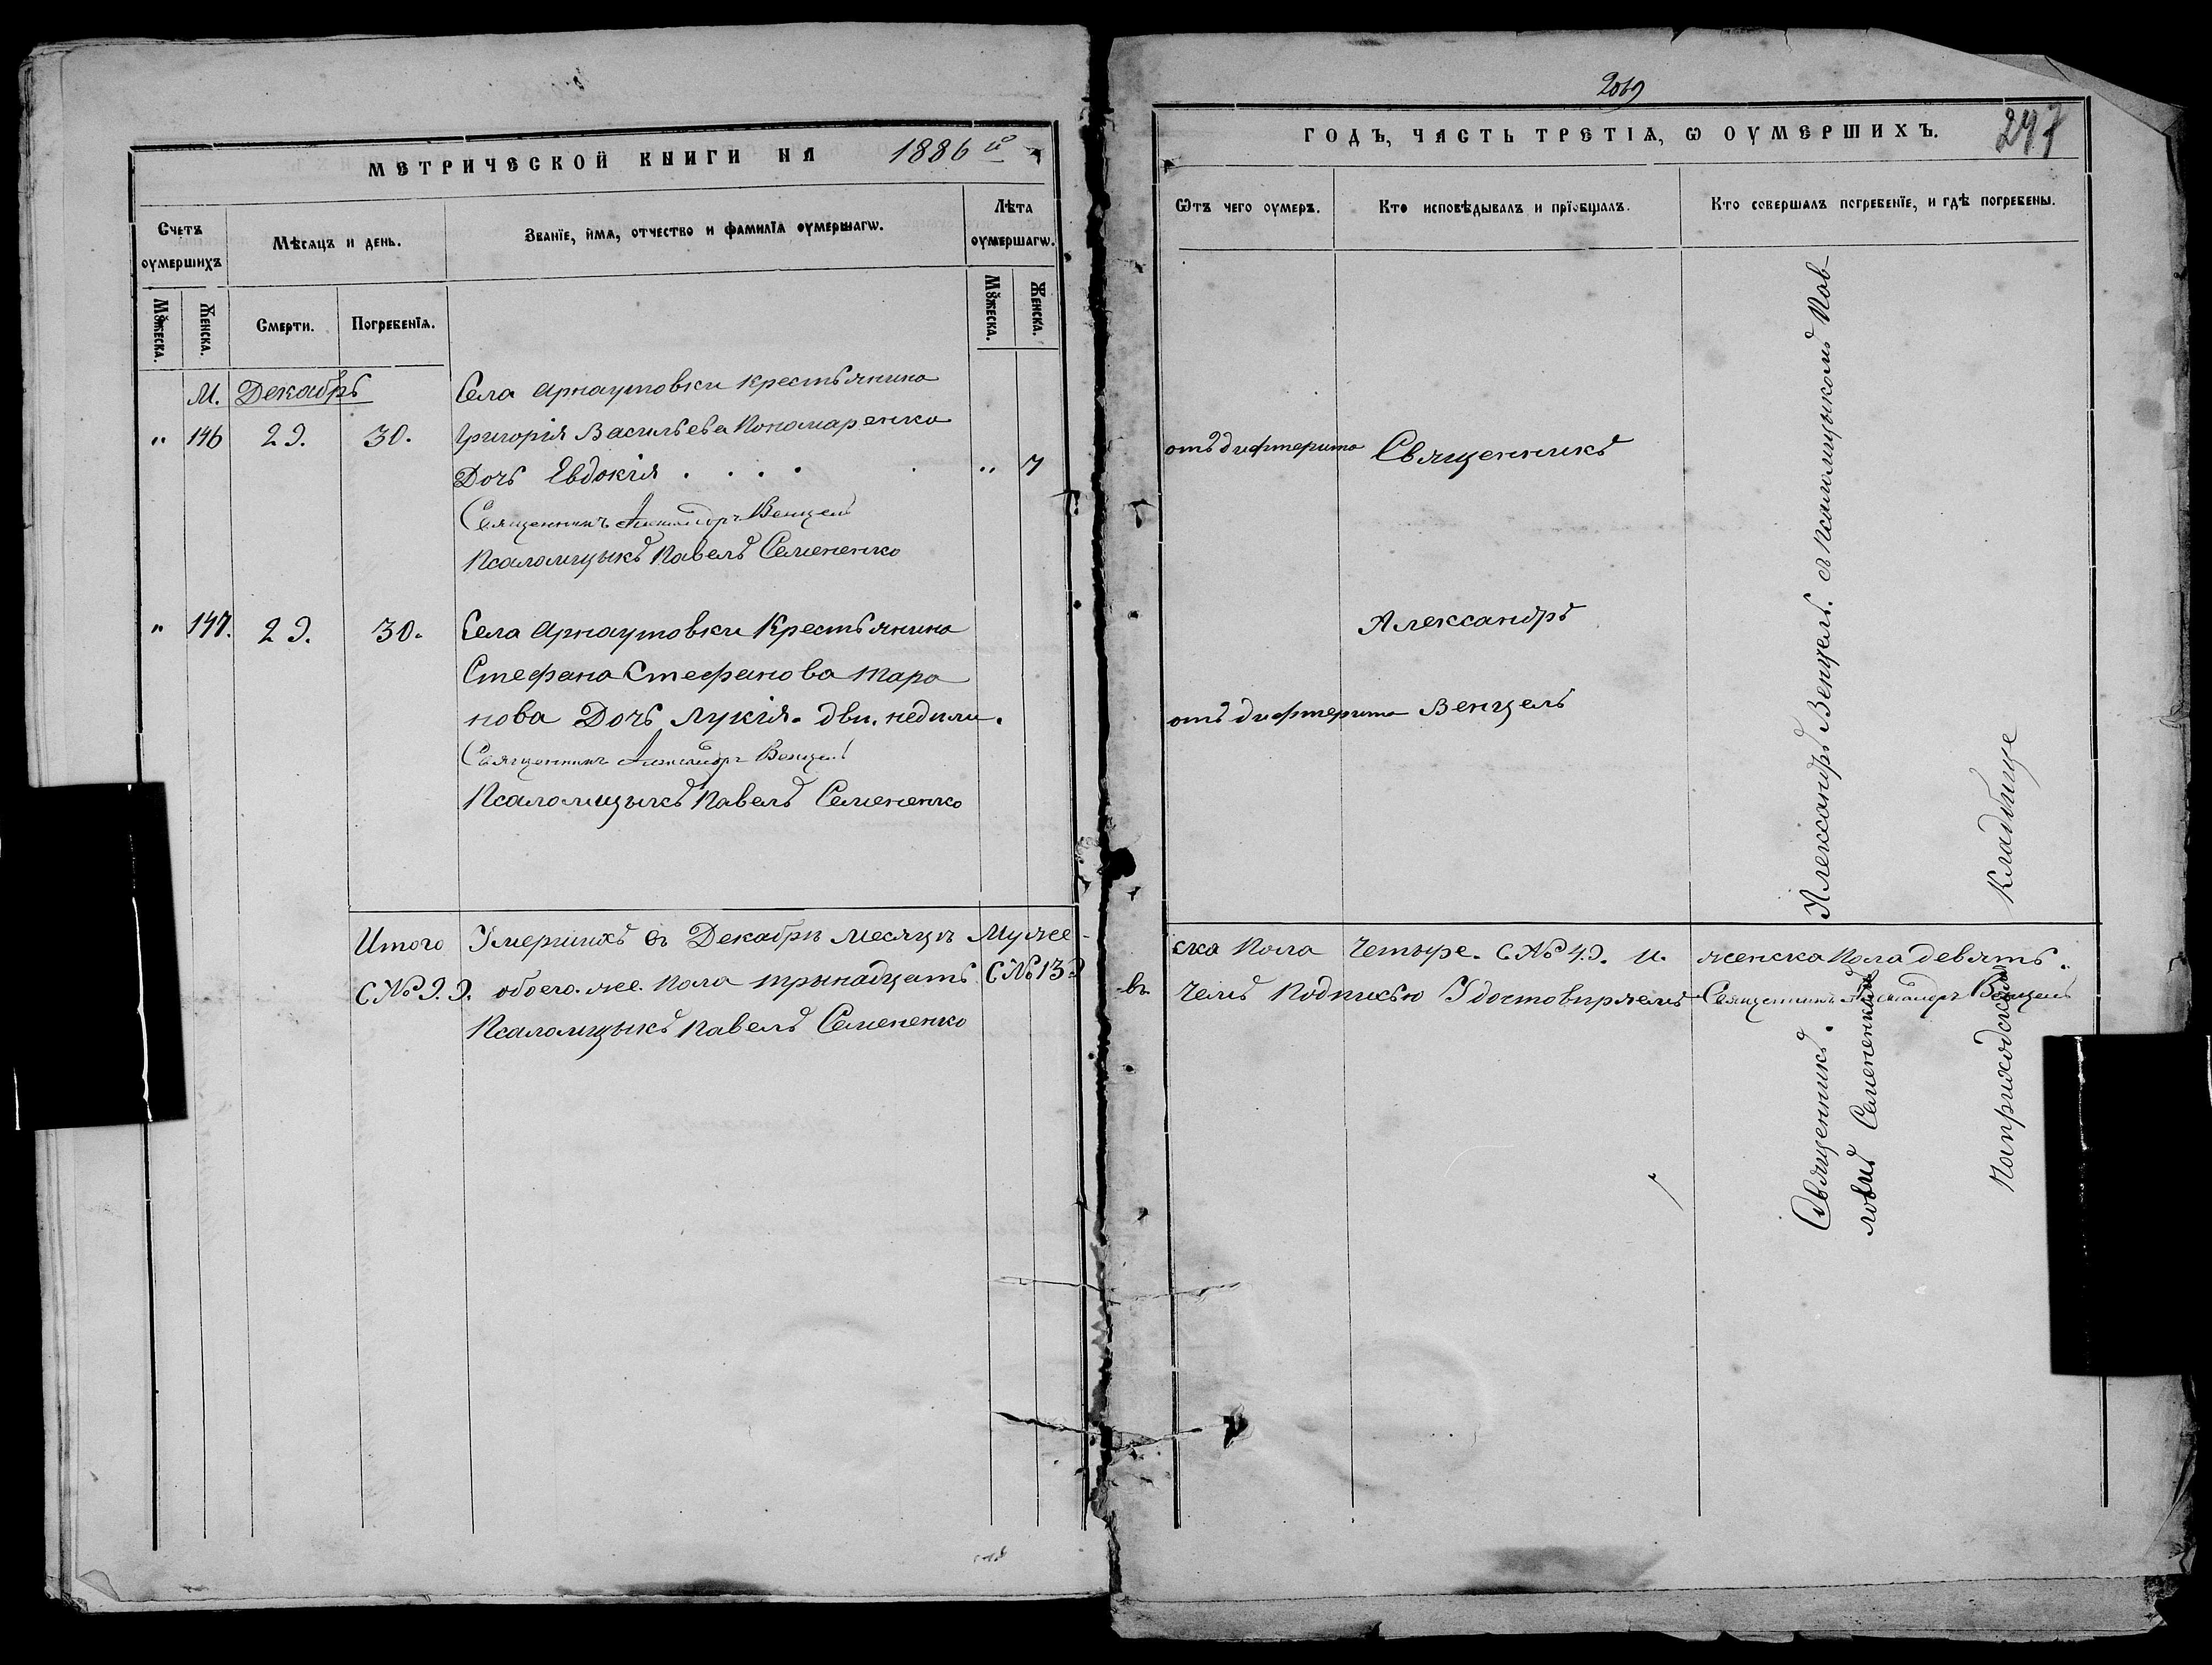 МЕТРИЧЕСКОЙ КНИГИ НА 1886 й
Счетъ оумершихъ
Мѣсяцъ и день.
Званїе, имя, отчество и фамилїя оумершагѡ.
Лѣта оумершагѡ.
Мꙋжеска.
Женска.
Смерти.
Погребенїя.
Мꙋжеска.
Женска.
М. Декабрь
Села Арнаутовки крестьянина
" 146 29. 30. Григорія Васильева Пономаренка
Дочь Евдокія . . . . " 7
Священникъ Александръ Венцель
Псаломщыкъ Павелъ Семененко
" 147. 29. 30. Села Арнаутовки Крестьянина
Стефана Стефанова Тара
нова Дочь Лукія. дви. недили.
Священникъ Александръ Венцель
Псаломщыкъ Павелъ Семененко
Итого Умершихъ въ Декабрѣ месяцѣ Муже-
С № 9.9. обоего. же. Пола трынадцать С № 13
Псаломщыкъ Павелъ Семененко
2069
ГОДЪ, ЧАСТЬ ТРЕТІЯ, Ѡ ОУМЕРШИХЪ.
247
Ѿтъ чего оумеръ.
Кто исповѣдывалъ и прїобщалъ.
Кто совершалъ погребенїе, и гдѣ погребены.
отъ дифтерита Священникъ
Александръ
отъ дифтерита Венцель
Священникъ. Александръ Венцель. съ Псаломщыкомъ Пав-
ломъ Семененкомъ
На приходскомъ Кладбище
ска Пола Четыре. С № 4.9. и. женска Пола девять.
въ Чемъ Подписью Удостовиряемъ Священникъ Александръ Венцель